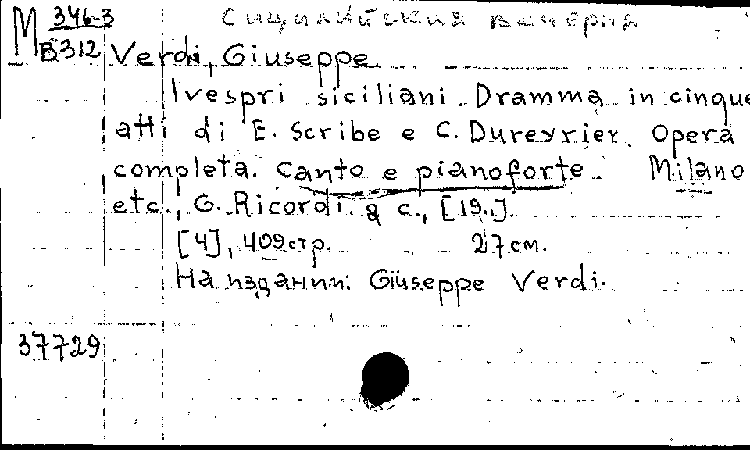 М 346-3 Сицилийская вечерня
В312 Verdi, Giuseppe
I vespri siciliani. Dramma in cinque
atti di E. Scribe e C. Dureyrier. Opera
completa. Canto e pianoforte. Milano
etc., G. Ricordi & c., [19..]
[4], 409 стр. 27 см.
На издании: Giuseppe Verdi.
37729